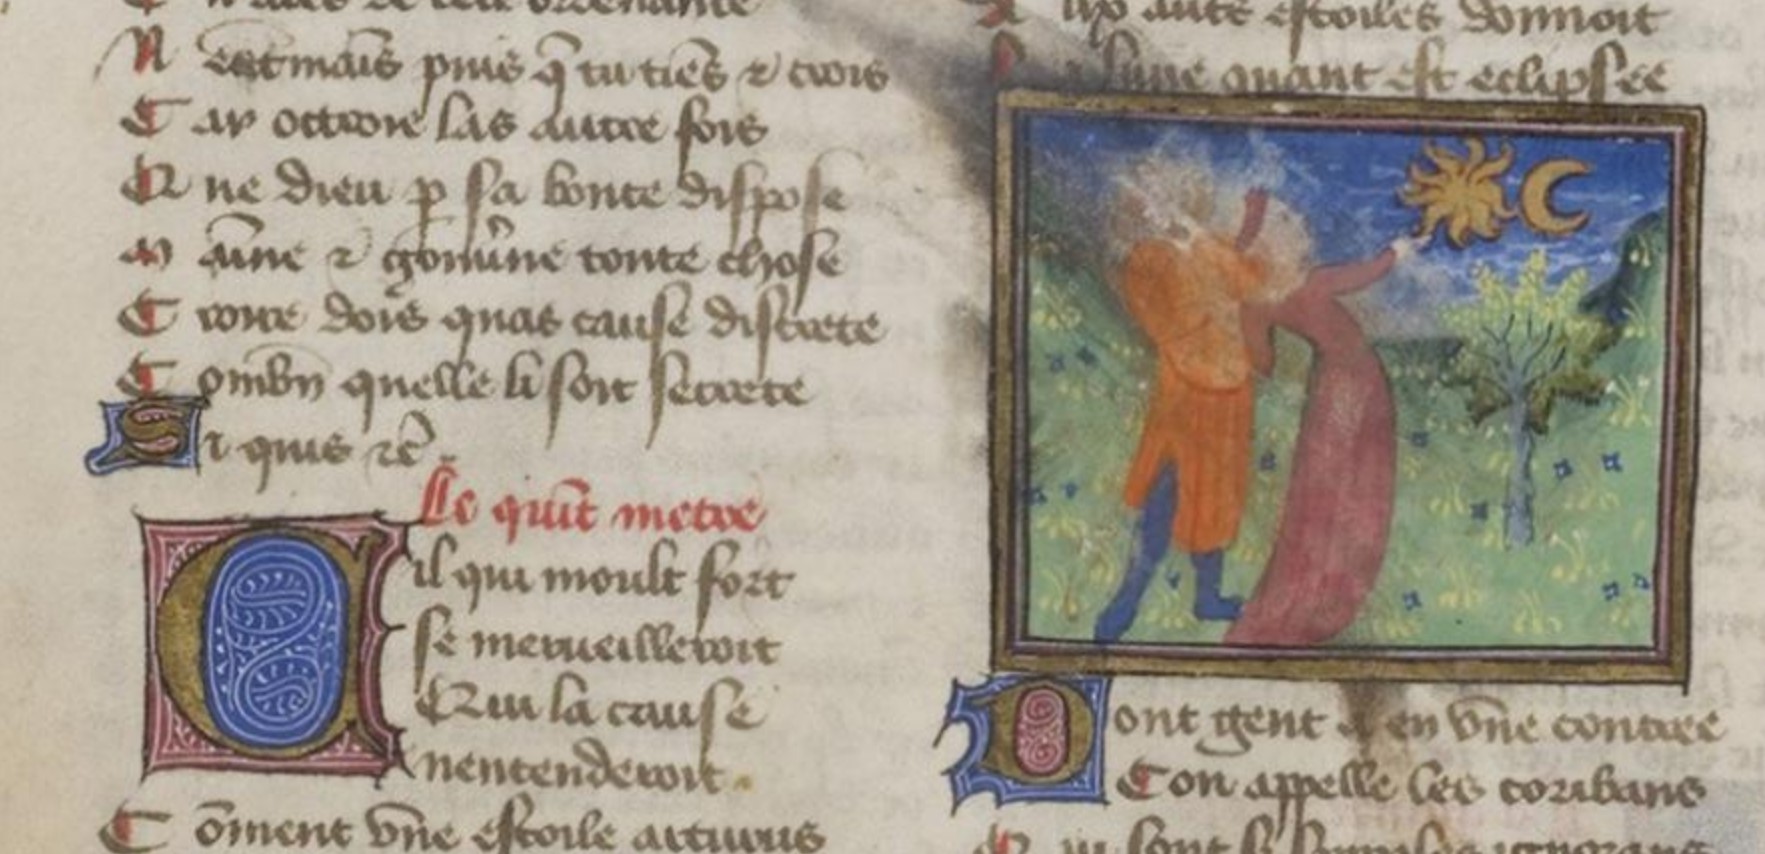 N est mais puis q̃ tu tiẽs ⁊ crois
C ar octroie las autre fois
Q ue dieu ꝑ sa bonte dispose
M aĩne ⁊ gouũne toute chose
C roire dois quas cause discrete
C ombñ quelle li soit secrete
Si quis ⁊c̃
Le quĩt metre
Cil qui moult fort
se merueilleroit
Qui la cause
nentenderoit.
C õment vñe estoile arturus
estoiles donnoit
La lune quant est eclipsee
Dont gent en vñe contree
Con appelle les coribans